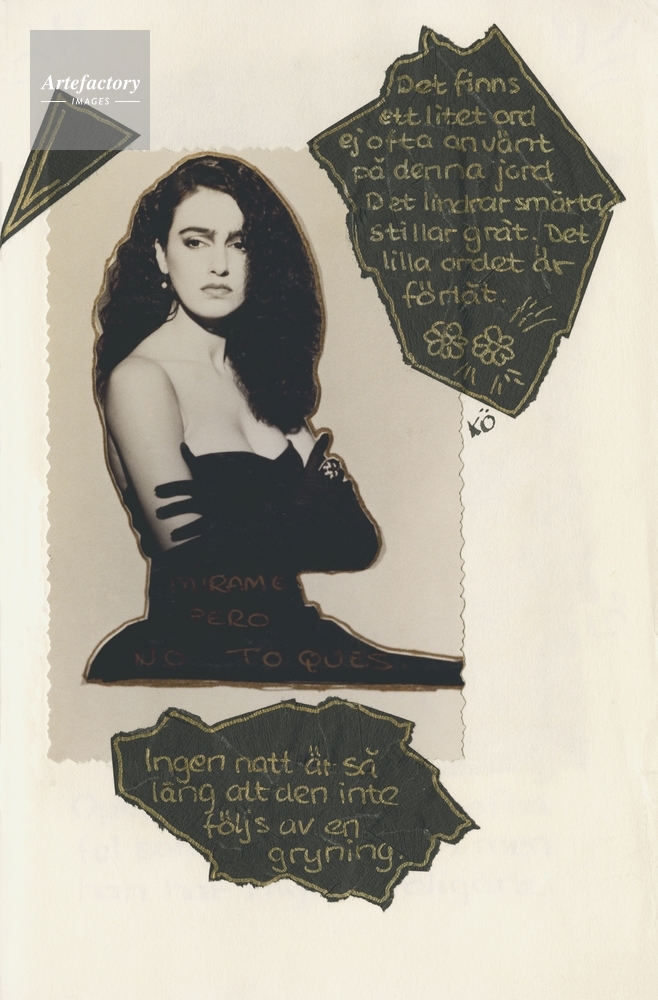 Artefactory
IMAGES
Det finns
ett litet ord
ej ofta använt
på denna jord
Det lindrar smärta,
stillar gråt. Det
lilla ordet är
förlåt.
KÖ
MIRAME
PERO
NO TO QUES
Ingen natt är så
lång att den inte
följs av en
gryning.